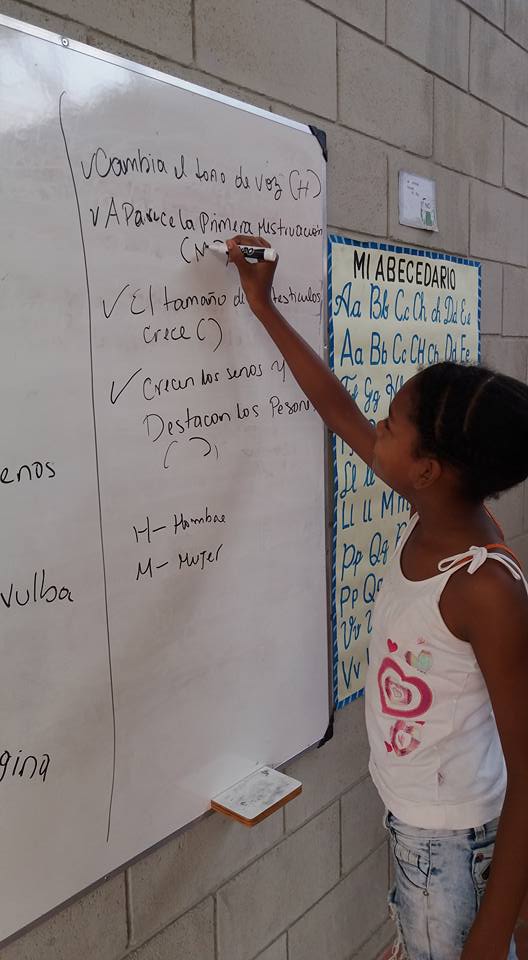 enos
vulba
gina
✓Cambia el tono de voz (H)
✓Aparece la Primera mestruación
(M
✓ El tamaño de testiculos
Crece ( )
✓ Crecen los senos y
Destacan los Pesones
( )
H- Hombre
M- Mujer
MI ABECEDARIO
Aa Bb Cc Ch ch Dd Ee
Aa Bb Cc CH Ch Dd Ee
Gg
Ll
LL ll Mm
Pp Qq
Pp Qq
Vv
Vv